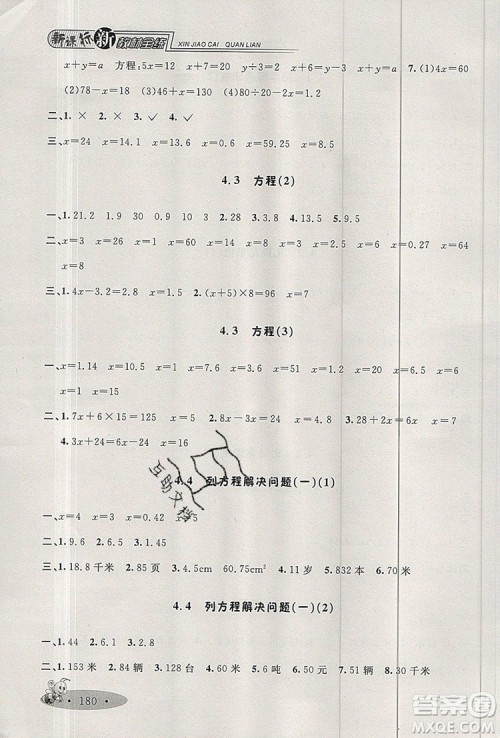 新课标新教材全练 XIN JIAO CAI QUAN LIAN
x+y=a 方程:5x=12 y÷3=2 x+y=a 7.(1)4x=60
(2)78-x=18 (3)6x=24 (4)80÷20-x=1.2
二、1.× 2.× 3.× 4.✓ 5.✓
三、x=24 x=13.6 x=59.5 x=14 x=13.66 x=0.8
4.3 方程(2)
一、1.21.2 1.9 30 9 0.3 2.28 3.0.38 4.13.5 5.9.5
二、x=3 x=32 x=4 x=3 x=6 x=0 x=64
x=38
三、1.4x-3.2=2.8 x=1.5 2.(x+5)×9=81 x=4
4.3 方程(3)
一、x=1.14 x=10.5 x=1 x=23 x=1.24 x=7.5
x=1 x=15
二、1.7x+6×15=181 x=13 2.8x-3x=35 x=7
3.3x+6=27 x=7
4.3x+24=72 x=16
4.4 列方程解决问题(一)(1)
一、x=4 x=3 x=0.42 x=5
二、1.90 2.6.5 3.1.45
三、1.18.8千米 2.85页 3.4.5cm 60.75cm² 4.11岁 5.832本 6.70米
4.4 列方程解决问题(一)(2)
一、1.44 2.8
二、1.153米 2.84辆 3.128台 4.2.6吨 5.56辆 6.48辆 7.90米 8.30千米
180
互助文档
答案圈